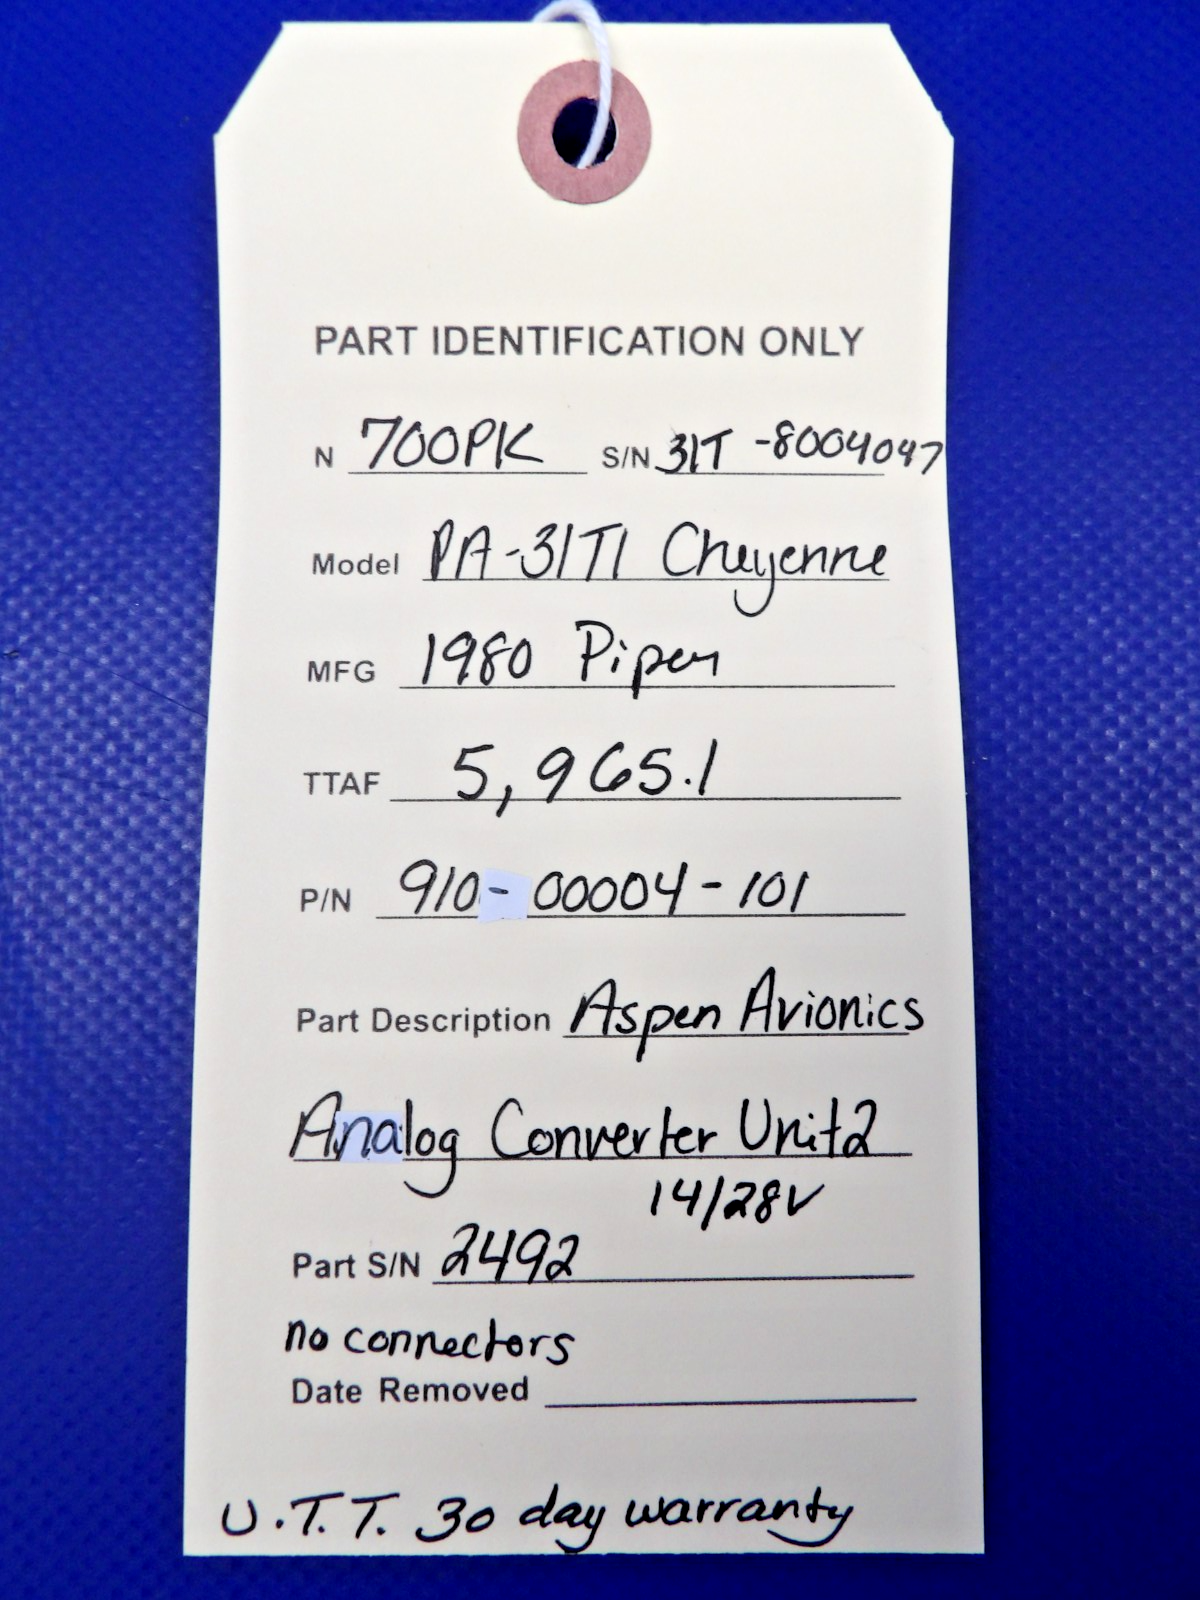 PART IDENTIFICATION ONLY
N 700PK S/N 31T -8004047
Model PA-31T1 Cheyenne
MFG 1980 Piper
TTAF 5,965.1
P/N 910-00004-101
Part Description Aspen Avionics
Analog Converter Unit2
14/28V
Part S/N 2492
no connectors
Date Removed
U.T.T. 30 day warranty